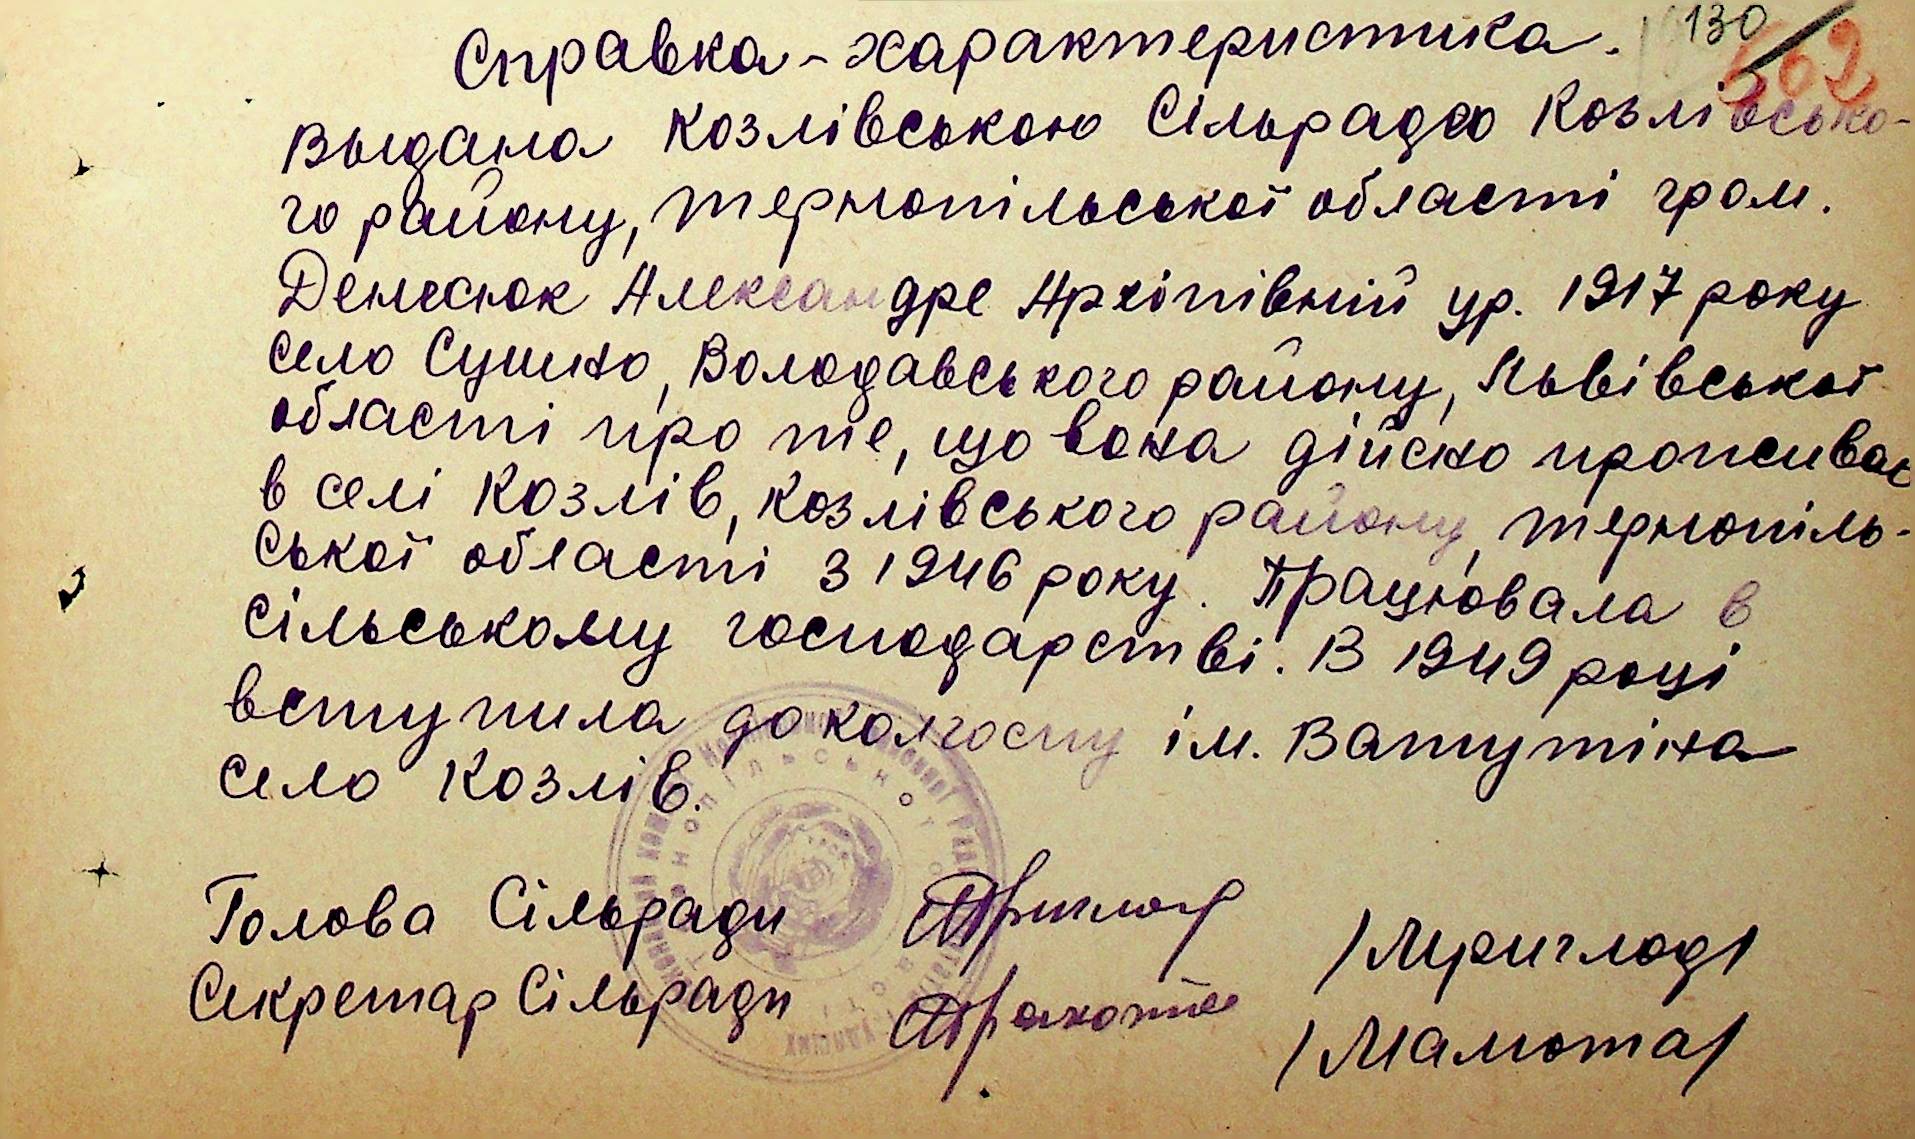 130
662
Справка-характеристика.
Выдана Козлівською Сільрадою Козлівсько-
го району, Тернопільської області гром.
Денесюк Александре Архіпівній ур. 1917 року
село Сушно, Володавського району, Львівської
області про те, що вона дійсно проживає
в селі Козлів, Козлівського району, Тернопіль-
ської області з 1946 року. Працювала в
сільському господарстві. В 1949 році
вступила до колгоспу ім. Ватутіна
село Козлів.
Голова Сільради /Мриглод/
Секретар Сільради /Мамота/